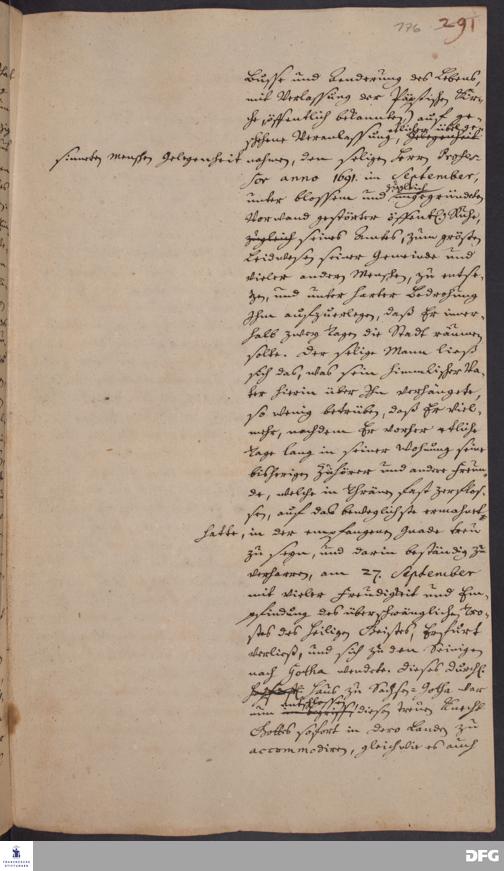 176 291
Busse und Aenderung des Lebens,
mit Verlassung der Päpstischen Kir-
che, öffentlich bekannten) auf ge-
schehene Veranlassung, etlicher übel ge-
sinneten Menschen Gelegenheit nahmen, dem seligen Herrn Profes-
sor anno 1691. im September,
unter blossem und zugleich ungegründeten
Vorwand gestörter öffentl. Ruhe,
zugleich seines Amtes, zum grösten
Leidwesen seiner Gemeinde und
vieler andern Menschen, zu entse-
tzen, und unter harter Bedrohung
Ihm aufzuerlegen, daß Er inner-
halb zwey Tagen die Stadt räumen
solte. Der selige Mann ließ
sich das, was sein himmlischer Va-
ter hierin über Ihn verhängete,
so wenig betrüben, daß Er viel-
mehr, nachdem Er vorher etliche
Tage lang in seiner Wohnung seine
bisherigen Zuhörer und andere Freun-
de, welche in Thränen fast zerfloß-
sen, auf das beweglichste ermahnet
hatte, in der empfangenen Gnade treu
zu seyn, und darin beständig zu
verharren, am 27. September
mit vieler Freudigkeit und Em-
pfindung des überschwänglichen Tro-
stes des Heiligen Geistes, Erfurt
verließ, und sich zu den Seinigen
nach Gotha wendete. Dieses Durchl.
Haus zu Sachsen-Gotha war
nun entschlossen, diesen treuen Knecht
Gottes sofort in dero Landen zu
accommodiren, gleichwie es auch
FRANCKESCHE STIFTUNGEN
DFG